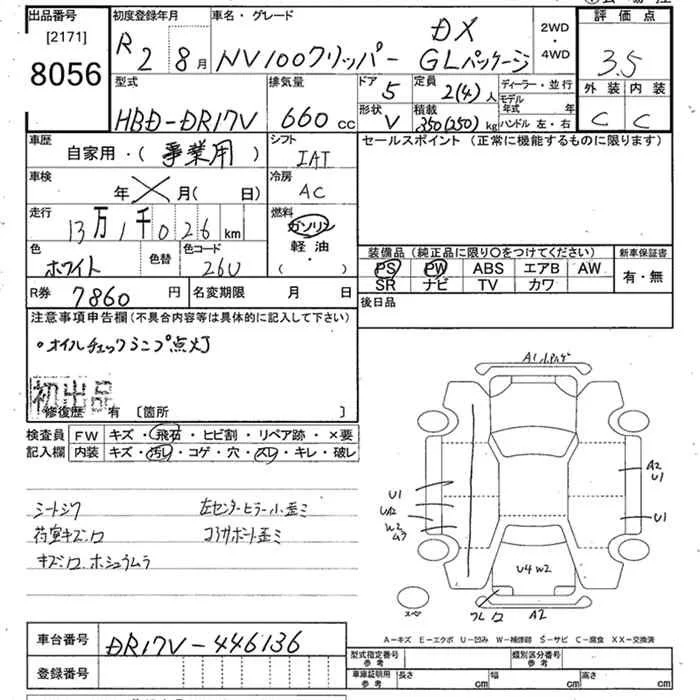 出品番号
[2171]
8056
初度登録年月
R2 8月
車名・グレード
NV100クリッパー DX GLパッケージ
2WD
4WD
評価点
3.5
外装 内装
C C
型式
HBD-DR17V
排気量
660 cc
ドア
5
定員
2(4)人
形状
V
積載
350(250)kg
ディーラー・並行
モデル年式 年
ハンドル 左・右
車歴
自家用・(事業用)
シフト
IAT
車検
年 月( 日)
冷房
AC
走行
13万1千026km
燃料
ガソリン
軽油
( )
色
ホワイト
色替
色コード
26U
R券 7860円
名変期限 月 日
セールスポイント (正常に機能するものに限ります)
装備品 (純正品に限り○をつけてください)
新車保証書
PS PW ABS エアB AW
有・無
SR ナビ TV カワ
後日品
注意事項申告欄(不具合内容等は具体的に記入して下さい)
・オイルチェックランプ点灯
初出品
修復歴 有 [箇所 ]
検査員
記入欄
FW キズ・飛石・ヒビ割・リペア跡・×要
内装 キズ・汚レ・コゲ・穴・スレ・キレ・破レ
シートシワ
荷室キズ、ワレ
左センターピラー小歪ミ
コアサポート歪ミ
A2
U1
U1
U1
UA2
W2
U4 W2
A2
スペ
A-キズ E-エクボ U-凹み W-補修跡 S-サビ C-腐食 XX-交換済
車台番号
DR17V-446136
登録番号
型式指定番号
参考
類別区分番号
参考
車庫証明用
参考
長さ cm
幅 cm
高さ cm